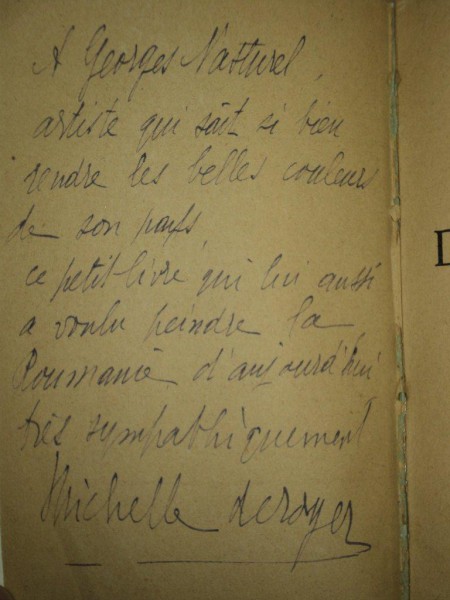 A Georges Natturel,
artiste qui sait si bien
rendre les belles couleurs
de son pays,
ce petit livre qui lui aussi
a voulu peindre la
Roumanie d'aujourd'hui
très sympathiquement
Michelle deroyer
D